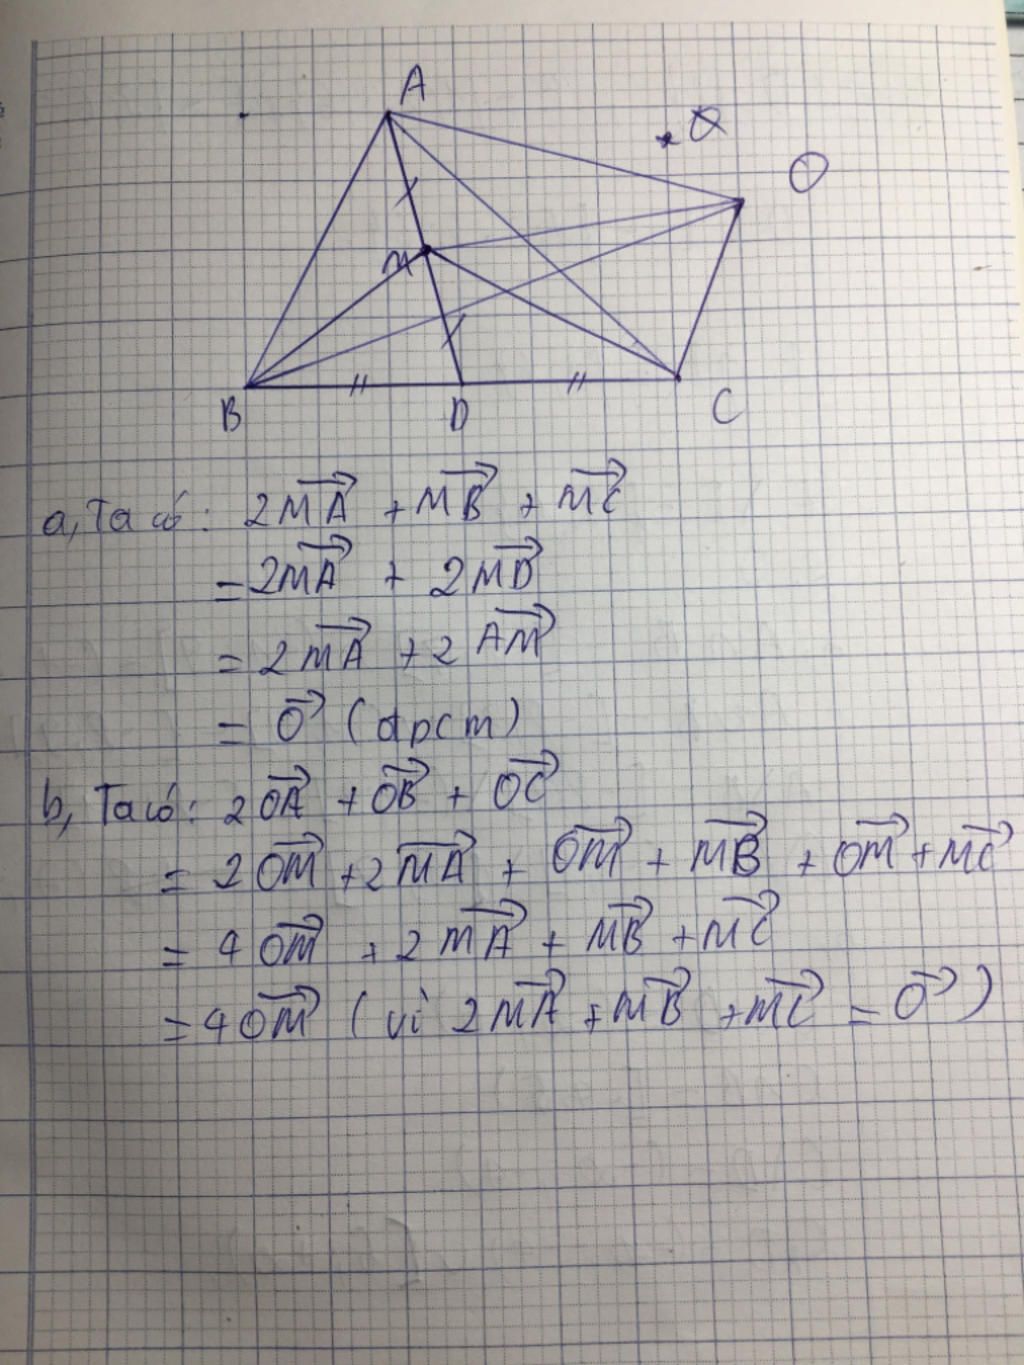 A
O
O
M
B
D
C
a, Ta có: 2\overrightarrow{MA} + \overrightarrow{MB} + \overrightarrow{MC}
= 2\overrightarrow{MA} + 2\overrightarrow{MD}
= 2\overrightarrow{MA} + 2\overrightarrow{AM}
= \overrightarrow{O} (dpcm)
b, Ta có: 2\overrightarrow{OA} + \overrightarrow{OB} + \overrightarrow{OC}
= 2\overrightarrow{OM} + 2\overrightarrow{MA} + \overrightarrow{OM} + \overrightarrow{MB} + \overrightarrow{OM} + \overrightarrow{MC}
= 4\overrightarrow{OM} + 2\overrightarrow{MA} + \overrightarrow{MB} + \overrightarrow{MC}
= 4\overrightarrow{OM} (vì 2\overrightarrow{MA} + \overrightarrow{MB} + \overrightarrow{MC} = \overrightarrow{O})